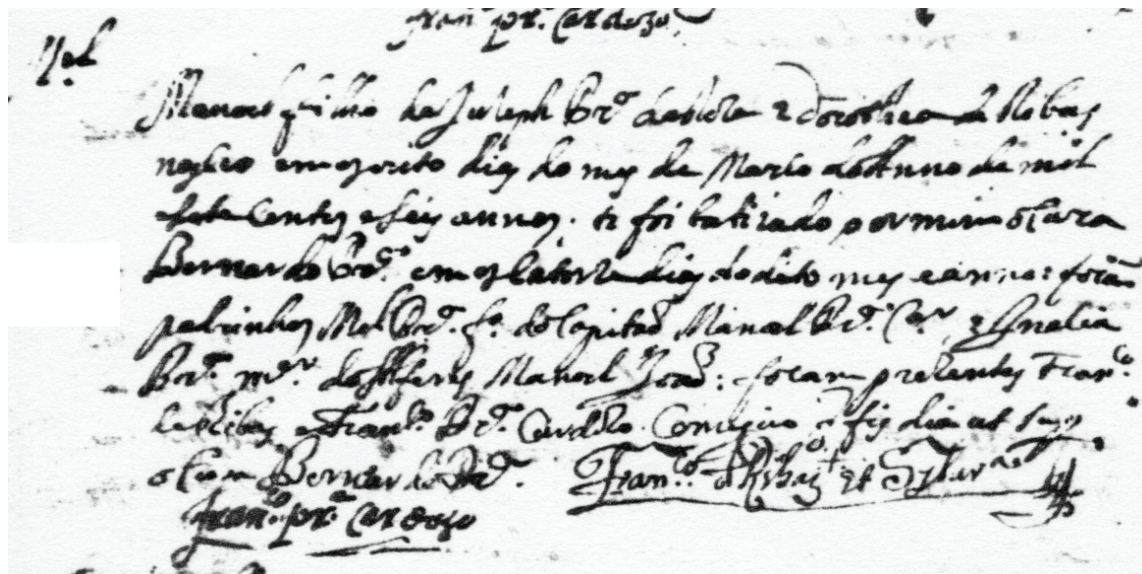 Fran.co Pr.a Cardozo
M.el
Manoel filho de Juseph Pr.a e Dorothea de Ribas
naseo em os outo dias do mes de Março do Anno de mil
e sete Centos e seis annos. e foi batizado por mim o Cura
Bernardo Pr.a em os catorze dias do dito mes e anno: foram
padrinhos M.el Pr.a f.o do Capitaõ Manoel Pr.a e
Pr.a m.er do Alferes Manoel Joaõ: foram prezentes Fran.co
de Ribas e Fran.co Pr.a Cardozo. q fis dia ut supra
o Cura Bernardo Pr.a. Fran.co de Ribas
Fran.co Pr.a Cardozo